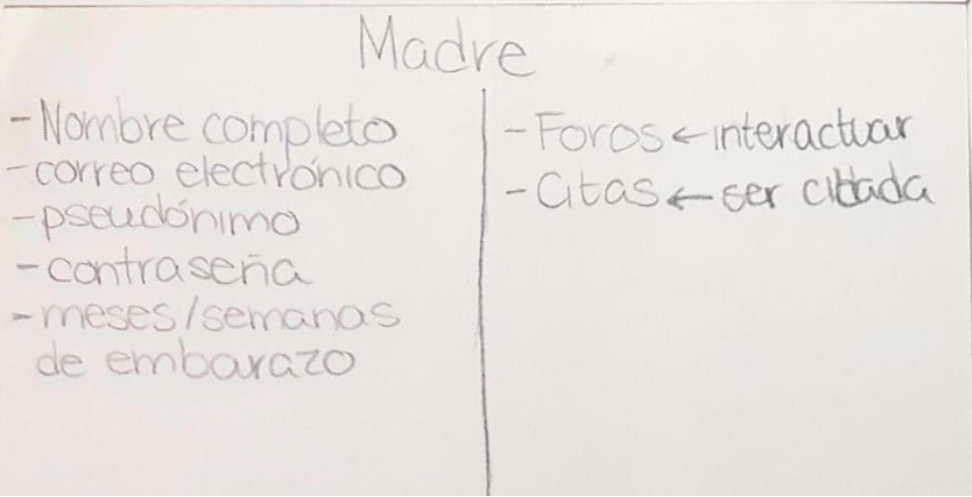 Madre
- Nombre completo
- correo electrónico
- pseudónimo
- contraseña
- meses/semanas
de embarazo
- Foros ← interactuar
- Citas ← ser citada